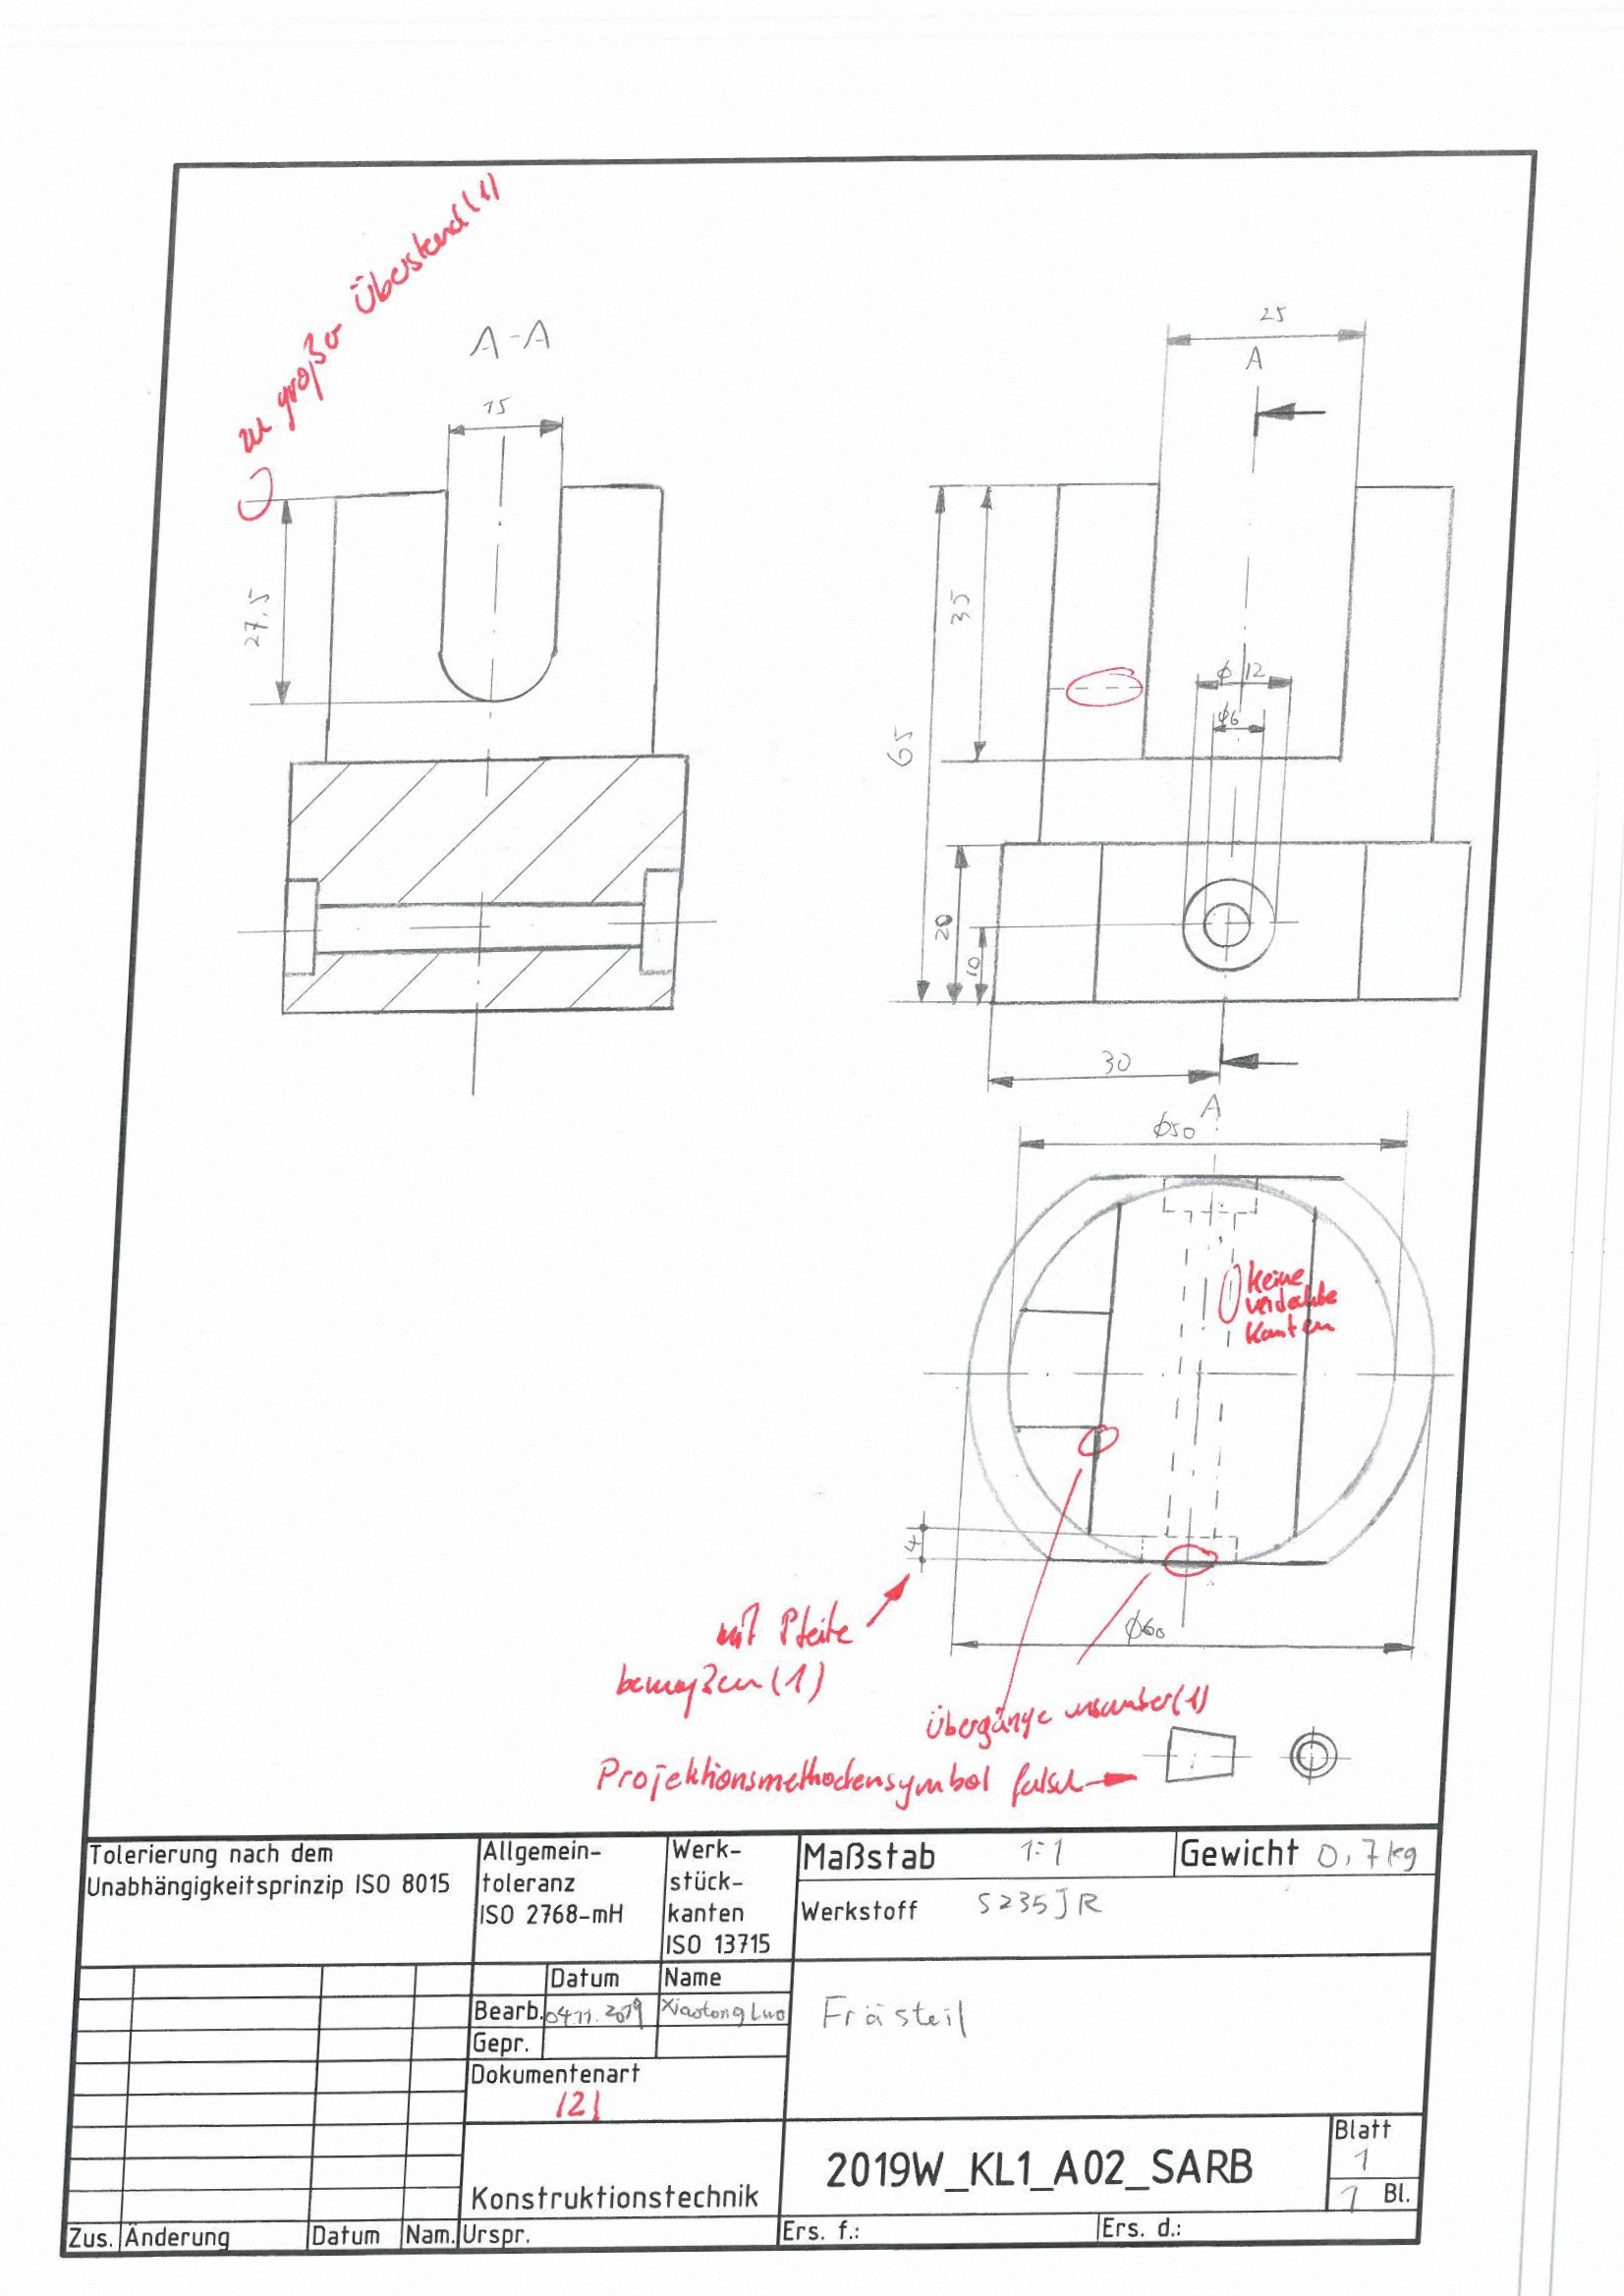 zu großer Überstand (1)
A-A
15
27,5
25
A
35
65
ϕ 12
ϕ6
20
10
30
A
ϕ50
keine
verdeckte
Kanten
4
mit Pfeile
bemaßen (1)
ϕ60
Übergänge unsauber (1)
Projektionsmethodensymbol falsch
Tolerierung nach dem
Unabhängigkeitsprinzip ISO 8015
Allgemein-
toleranz
ISO 2768-mH
Werk-
stück-
kanten
ISO 13715
Maßstab 1:1
Gewicht 0,7kg
Werkstoff S235JR
Datum Name
Bearb. 04.11.2019 Xiaotong Luo
Gepr.
Dokumentenart
121
Frästeil
Konstruktionstechnik
2019W_KL1_A02_SARB
Blatt
1
1 Bl.
Zus. Änderung Datum Nam. Urspr. Ers. f.: Ers. d.: